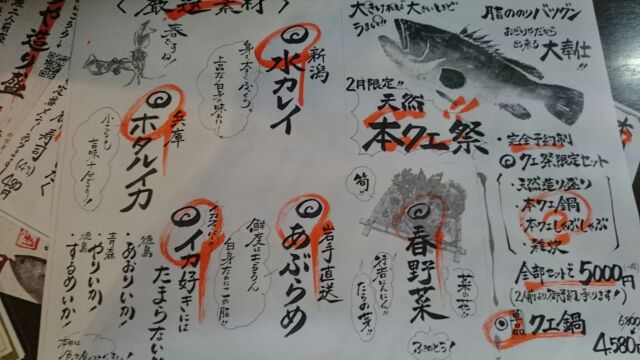 厳選素材
大きければ大きいほど
うまい!!
脂ののりバツグン
大奉仕!!
2月限定!!
天然
本クエ祭
・完全予約制
クエ祭限定セット
・天然造り盛り
・本クエ鍋
・本クエしゃぶしゃぶ
・雑炊
全部セットで5000円
単品
クエ鍋
4580円
新潟
水カレイ
身も大きくぶ厚く。
上品な白身の味わい。
兵庫
ホタルイカ
小さくても
旨味十分です!!
岩手直送
あぶらめ
鮮度はもちろん
白身なのにこの脂!!
春野菜
筍!!
菜の花
行者にんにく
たらの芽!!
ふきのとう!
イカ好きには
たまらない
徳島
・あおりいか!
青森
・やりいか!
徳島
・するめいか!
こや造り盛